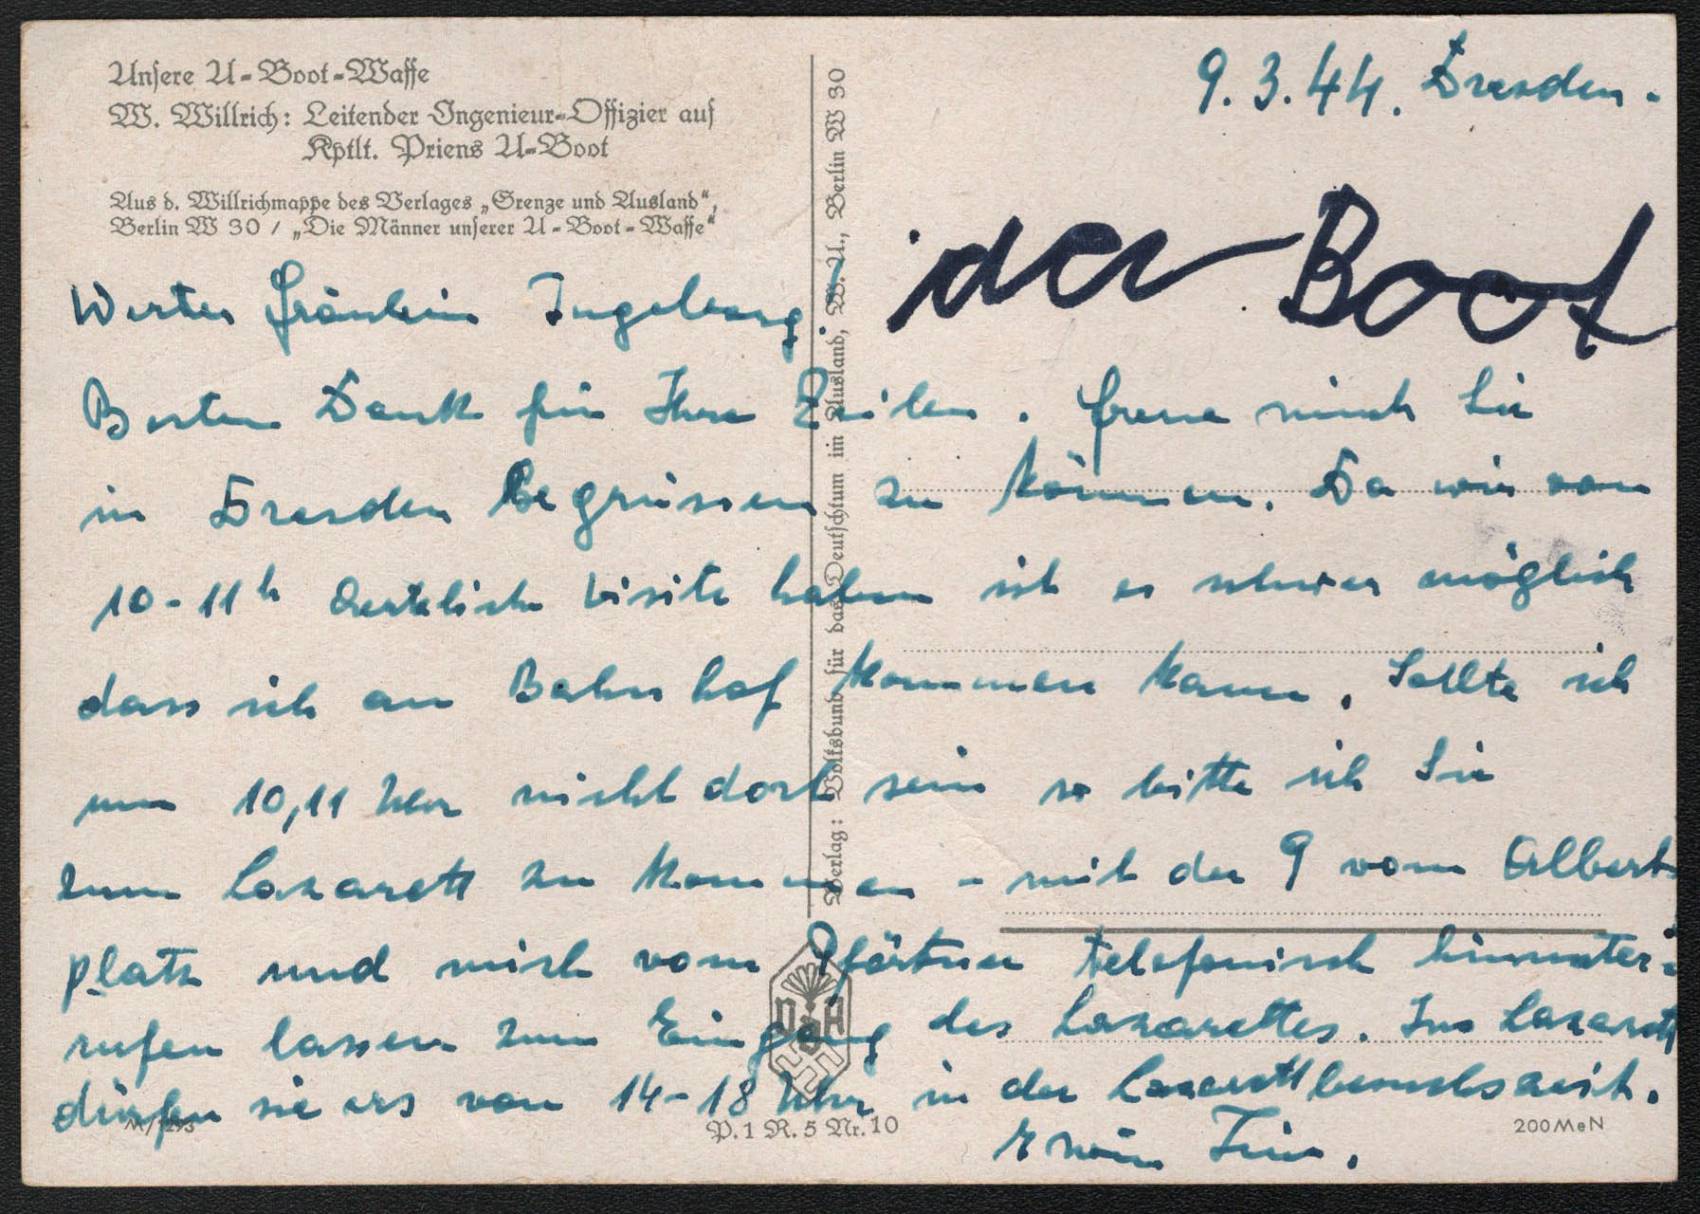 Unsere U-Boot-Waffe
W. Willrich: Leitender Ingenieur-Offizier auf
Kptlt. Priens U-Boot
Aus d. Willrichmappe des Verlages „Grenze und Ausland“,
Berlin W 30 / „Die Männer unserer U-Boot-Waffe“
Verlag: Volksbund für das Deutschtum im Ausland, W. A., Berlin W 30
9.3.44. Dresden.
der Boot
Wertes Fräulein Ingeborg.
Besten Dank für Ihre Zeilen. Freue mich Sie
in Dresden Begrüssen zu können. Da wir von
10-11h Aerztliche Visite haben ist es schwer möglich
dass ich am Bahnhof kommen kann. Sollte ich
um 10,11 Uhr nicht dort sein so bitte ich Sie
zum Lazarett zu kommen - mit der 9 vom Albert
platz und mich vom Pförtner telefonisch hinunter-
rufen lassen zum Eingang des Lazarettes. Ins Lazarett
dürfen sie ers von 14-18 Uhr in der Lazarettbesuchszeit.
Erwin
VDA
P.1 R.5 Nr.10
200MeN